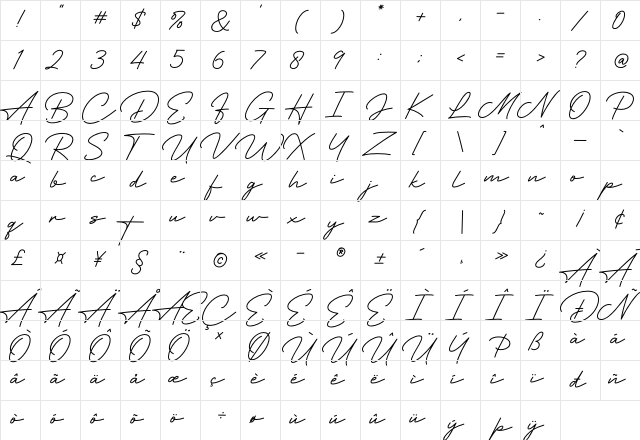 ! " # $ % & ' ( ) * + , - . / 0
1 2 3 4 5 6 7 8 9 : ; < = > ? @
A B C D E F G H I J K L M N O P
Q R S T U V W X Y Z [ \ ] ^ _ `
a b c d e f g h i j k l m n o p
q r s t u v w x y z { | } ~ ¡ ¢
£ ¤ ¥ ¦ § ¨ © « ¬ ® ± ´ ¸ » ¿ À Á
Â Ã Ä Å Æ Ç È É Ê Ë Ì Í Î Ï Ð Ñ
Ò Ó Ô Õ Ö × Ø Ù Ú Û Ü Ý Þ ß à á
â ã ä å æ ç è é ê ë ì í î ï đ ñ
ò ó ô õ ö ÷ ø ù ú û ü ý þ ÿ